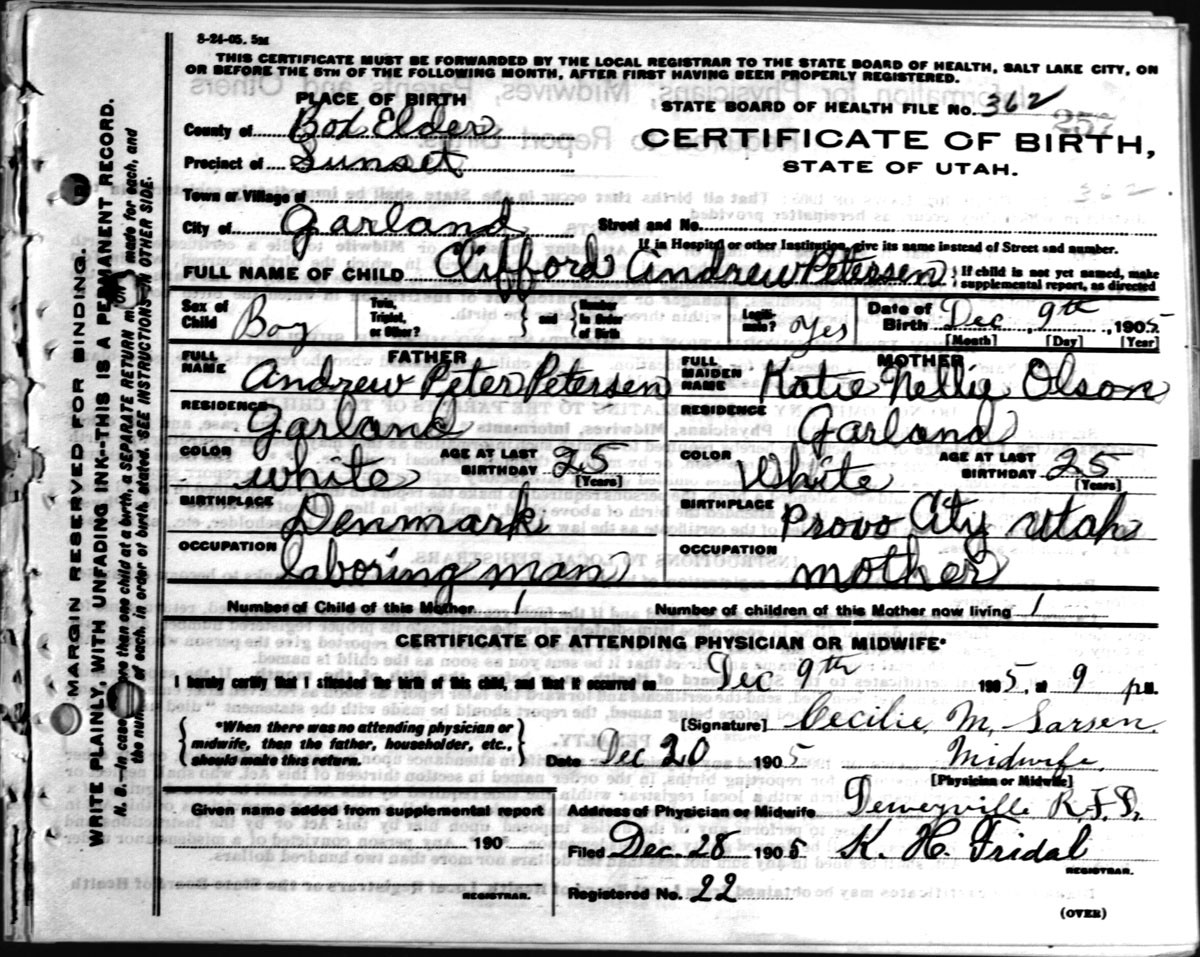 8-24-05. 5M
THIS CERTIFICATE MUST BE FORWARDED BY THE LOCAL REGISTRAR TO THE STATE BOARD OF HEALTH, SALT LAKE CITY, ON
OR BEFORE THE 5TH OF THE FOLLOWING MONTH, AFTER FIRST HAVING BEEN PROPERLY REGISTERED.
PLACE OF BIRTH
STATE BOARD OF HEALTH FILE No. 362
257
County of Box Elder
CERTIFICATE OF BIRTH,
Precinct of Sunset
STATE OF UTAH.
362
Town or Village of
City of Garland Street and No.
If in Hospital or other Institution, give its name instead of Street and number.
FULL NAME OF CHILD Clifford Andrew Petersen { If child is not yet named, make
supplemental report, as directed
Sex of Child Boy Twin, Triplet, or Other? and Number in Order of Birth Legitimate? Yes Date of Birth Dec 9th, 1905
[Month] [Day] [Year]
FATHER MOTHER
FULL NAME Andrew Peter Petersen FULL MAIDEN NAME Katie Nellie Olson
RESIDENCE Garland RESIDENCE Garland
COLOR white AGE AT LAST BIRTHDAY 25 [Years] COLOR White AGE AT LAST BIRTHDAY 25 [Years]
BIRTHPLACE Denmark BIRTHPLACE Provo City Utah
OCCUPATION laboring man OCCUPATION mother
Number of Child of this Mother 1 Number of children of this Mother now living 1
CERTIFICATE OF ATTENDING PHYSICIAN OR MIDWIFE*
I hereby certify that I attended the birth of this child, and that it occurred on Dec 9th 1905, at 9 p M.
*When there was no attending physician or
midwife, then the father, householder, etc.,
should make this return.
[Signature] Cecilie M. Larsen
Date Dec 20 1905 Midwife
[Physician or Midwife]
Given name added from supplemental report
190
REGISTRAR.
Address of Physician or Midwife Deweyville R.F.D.
Filed Dec 28 1905 K. H. Fridal
REGISTRAR.
Registered No. 22
(OVER)
MARGIN RESERVED FOR BINDING.
WRITE PLAINLY, WITH UNFADING INK--THIS IS A PERMANENT RECORD.
N. B.--In case more than one child at a birth, a SEPARATE RETURN must be made for each, and
the number of each, in order of birth, stated. SEE INSTRUCTIONS ON OTHER SIDE.